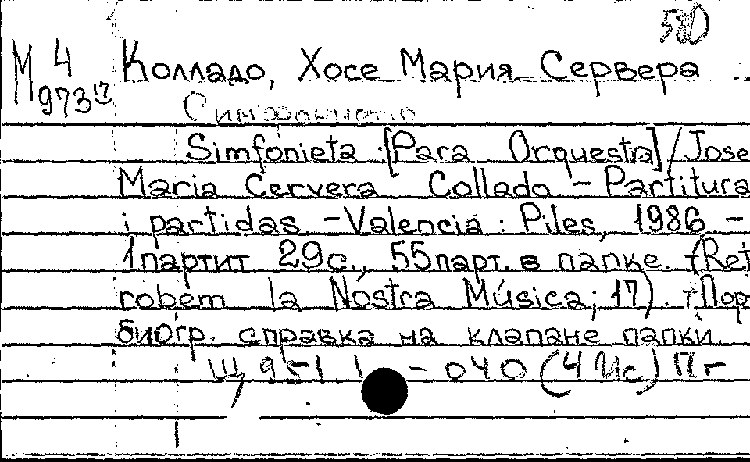 580
М 4 Колладо, Хосе Мария Сервера
973 17
Симфониета
Simfonieta [Para Orquestra] / Jose
Maria Cervera Collado - Partitura
i partidas. - Valencia : Piles, 1986 -
1 партит 29 с., 55 парт. в папке. - (Ret
robem la Nostra Música; 17). - Пор
биогр. справка на клапане папки.
Щ 951 - 040 (4 Ис) П г